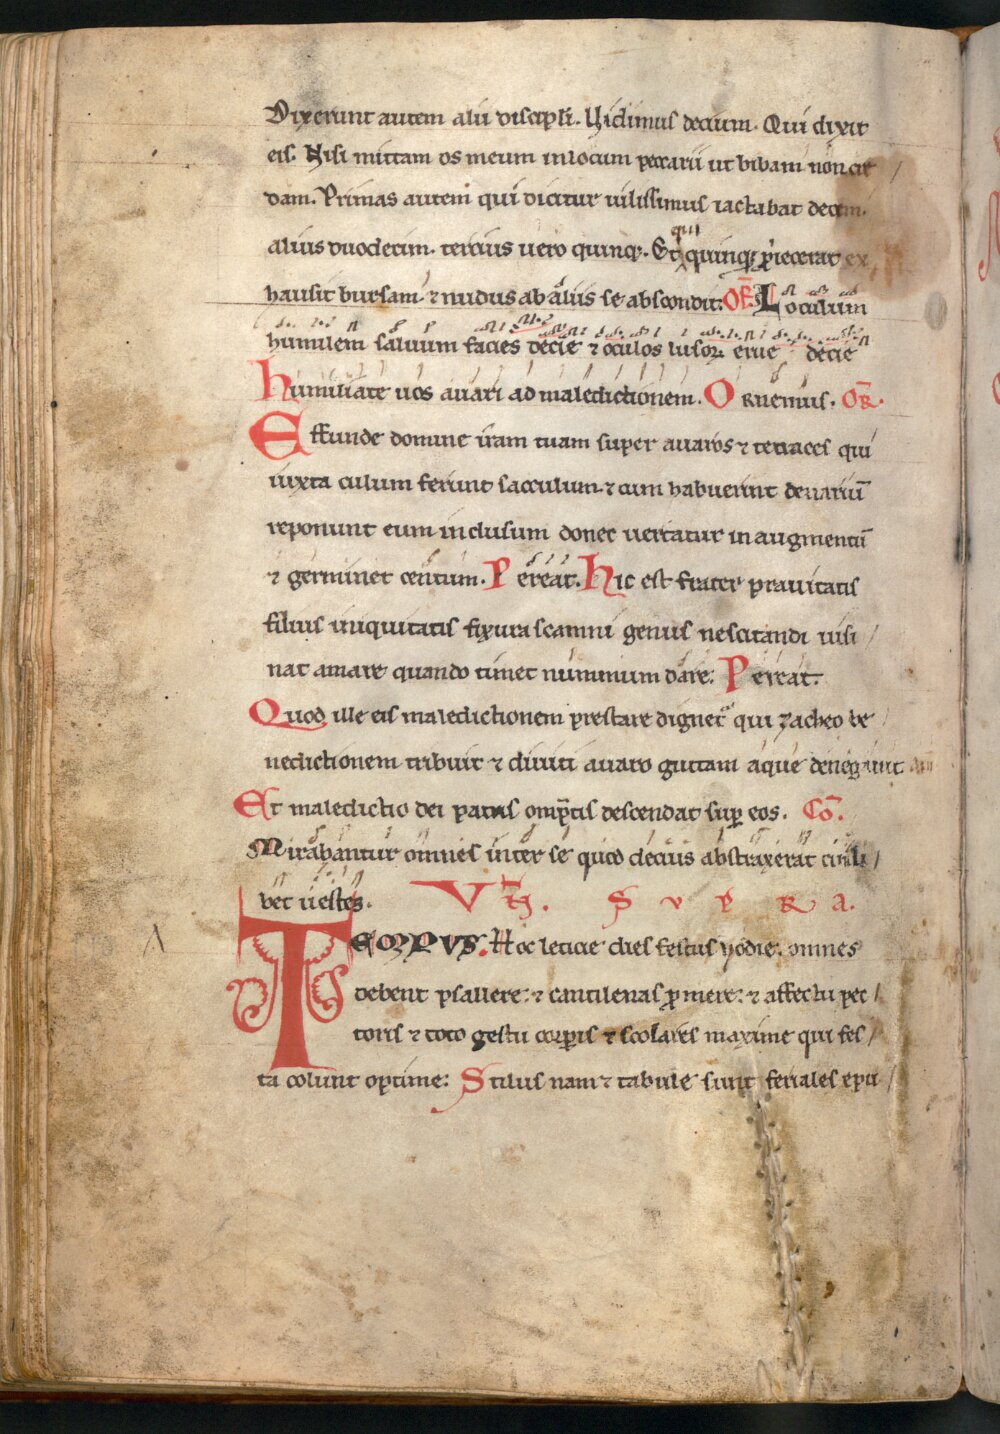 Dixerunt autem alii discipli. Uidimus decium. Qui dixit
eis. Nisi mittam os meum in locum peccarii ut bibam non cre
dam. Primas autem qui dicitur uilissimus iactabat decem.
alius duodecim. tercius uero quinq;. Et qui quinq; piecerat ex
hausit bursam. ⁊ nudus ab aliis se abscondit. OF. Loculum
humilem saluum facies decie ⁊ oculos lusoꝝ erue decie
Humiliate uos auari ad maledictionem. Oremus. OR.
Effunde domine iram tuam super auaros ⁊ tenaces qui
iuxta culum ferunt sacculum. ⁊ cum habuerint denariū
reponunt eum inclusum donec uertatur in augmentū
⁊ germinet centum. Pereat. Hic est frater prauitatis
filius iniquitatis fixura scamni genus nescitandi uisi
nat amare quando timet nummum dare. Pereat.
Quod ille eis maledictionem prestare dignet qui zacheo be
nedictionem tribuit ⁊ diuiti auaro guttam aque denegauit
Et maledictio dei patris omptis descendat sup eos. Cō.
Mirabantur omnes inter se quod decius abstraxerat cuili
bet uestes. V S v p R a.
TEMPVS. Hoc leticie dies festus hodie. omnes
debent psallere. ⁊ cantilenas pmere. ⁊ affectu pec
toris ⁊ toto gestu corpis ⁊ scolares maxime qui fes
ta colunt optime. Stilus nam ⁊ tabule sunt feriales epu